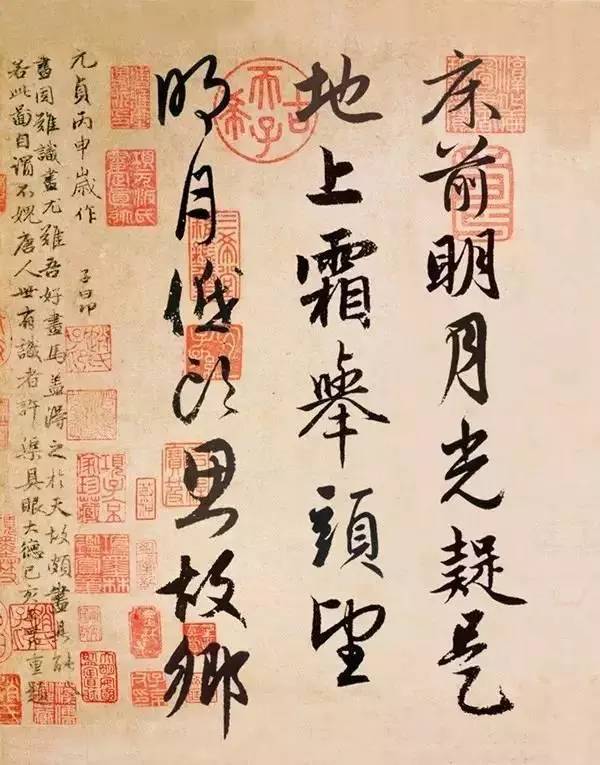 床前明月光疑是
地上霜舉頭望
明月低头思故鄉
元貞丙申歲作
子昂
畫固難識畫尤難吾好畫馬蓋得之於天故頗盡其能
若此圖自謂不愧唐人世有識者許渠具眼大德己亥子昂重題
古希天子
項子京家珍藏